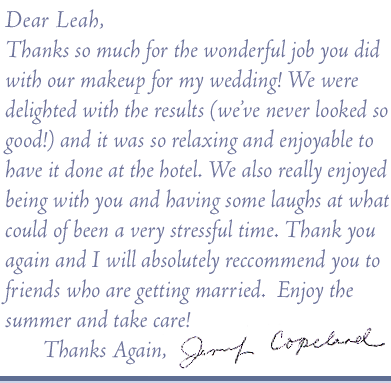 Dear Leah,
Thanks so much for the wonderful job you did
with our makeup for my wedding! We were
delighted with the results (we've never looked so
good!) and it was so relaxing and enjoyable to
have it done at the hotel. We also really enjoyed
being with you and having some laughs at what
could of been a very stressful time. Thank you
again and I will absolutely reccommend you to
friends who are getting married.  Enjoy the
summer and take care!
Thanks Again, Copeland